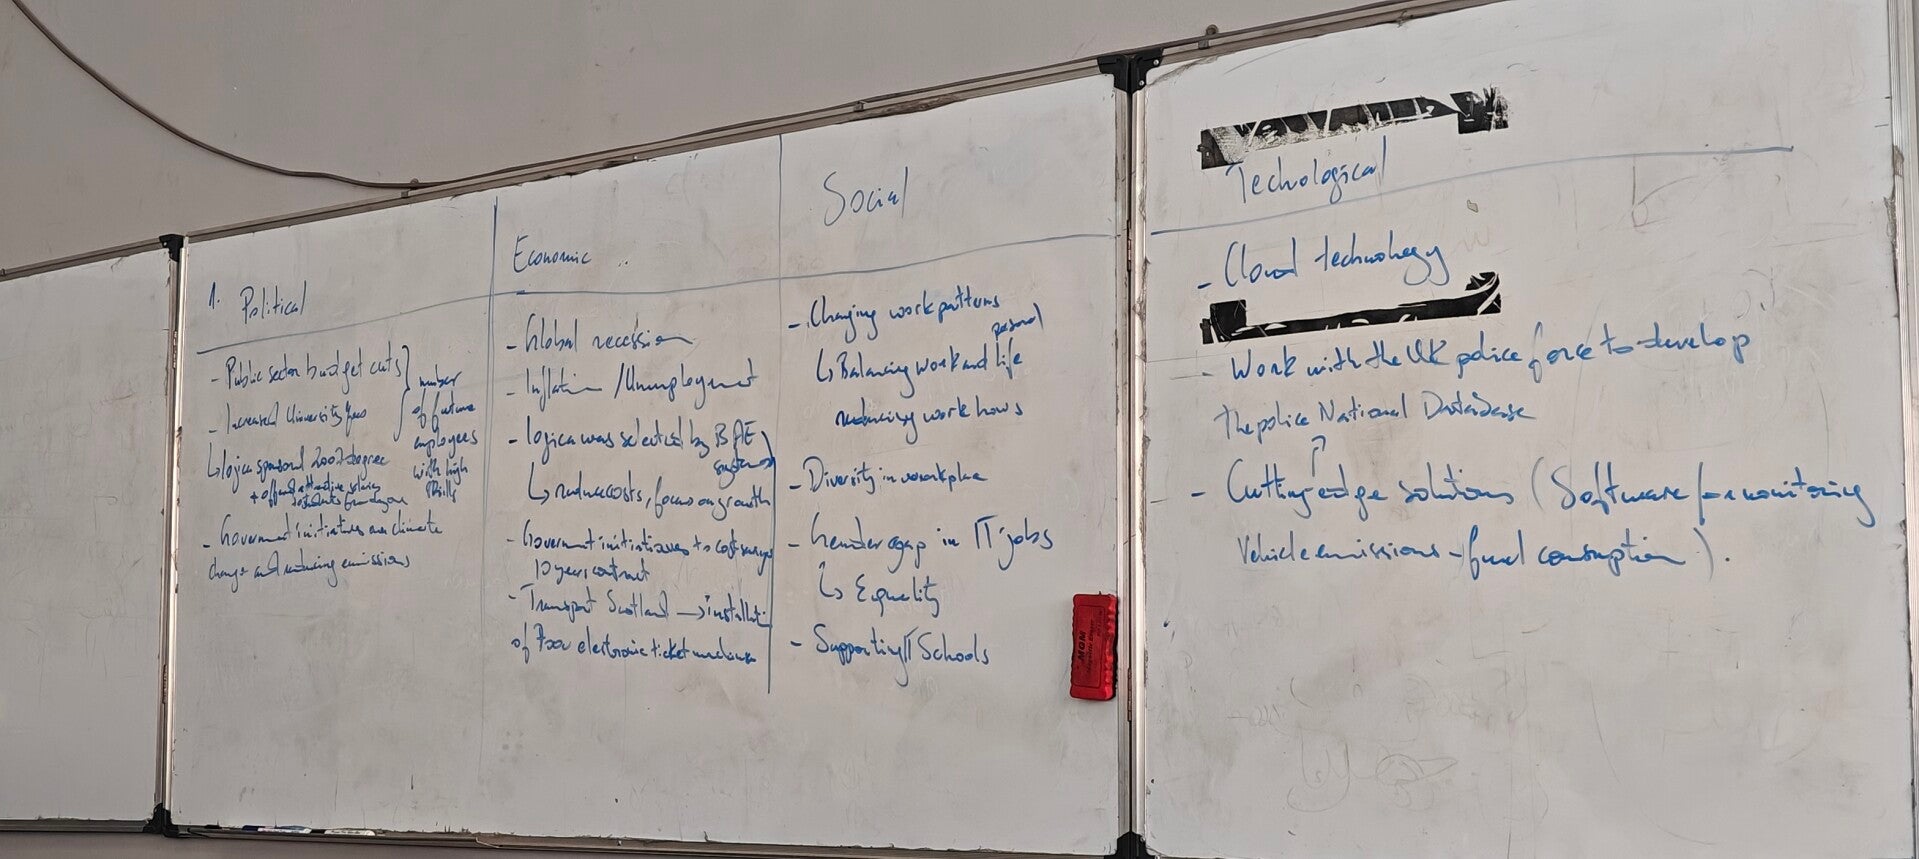 1. Political
- Public sector budget cuts
- Increased University fees
number
of future
employees
with high
skills
↳ logica sponsored degree
+ offered attractive salaries
- Government initiatives on climate
change and reducing emissions
Economic ..
- Global recession
- Inflation / Unemployment
- logica was selected by BAE
systems
↳ reduce costs, focus on growth
- Government initiatives to cost savings
10 years contract
- Transport Scotland → installation
of electronic ticket machines
Social
- Changing work patterns
personal
↳ Balancing work and life
reducing work hours
- Diversity in workplace
- Gender gap in IT jobs
↳ Equality
- Supporting IT Schools
MGM
Techological
- Cloud technology
- Work with the UK police force to develop
the police National Database
- Cutting edge solutions (Software for monitoring
Vehicle emissions - fuel consumption).